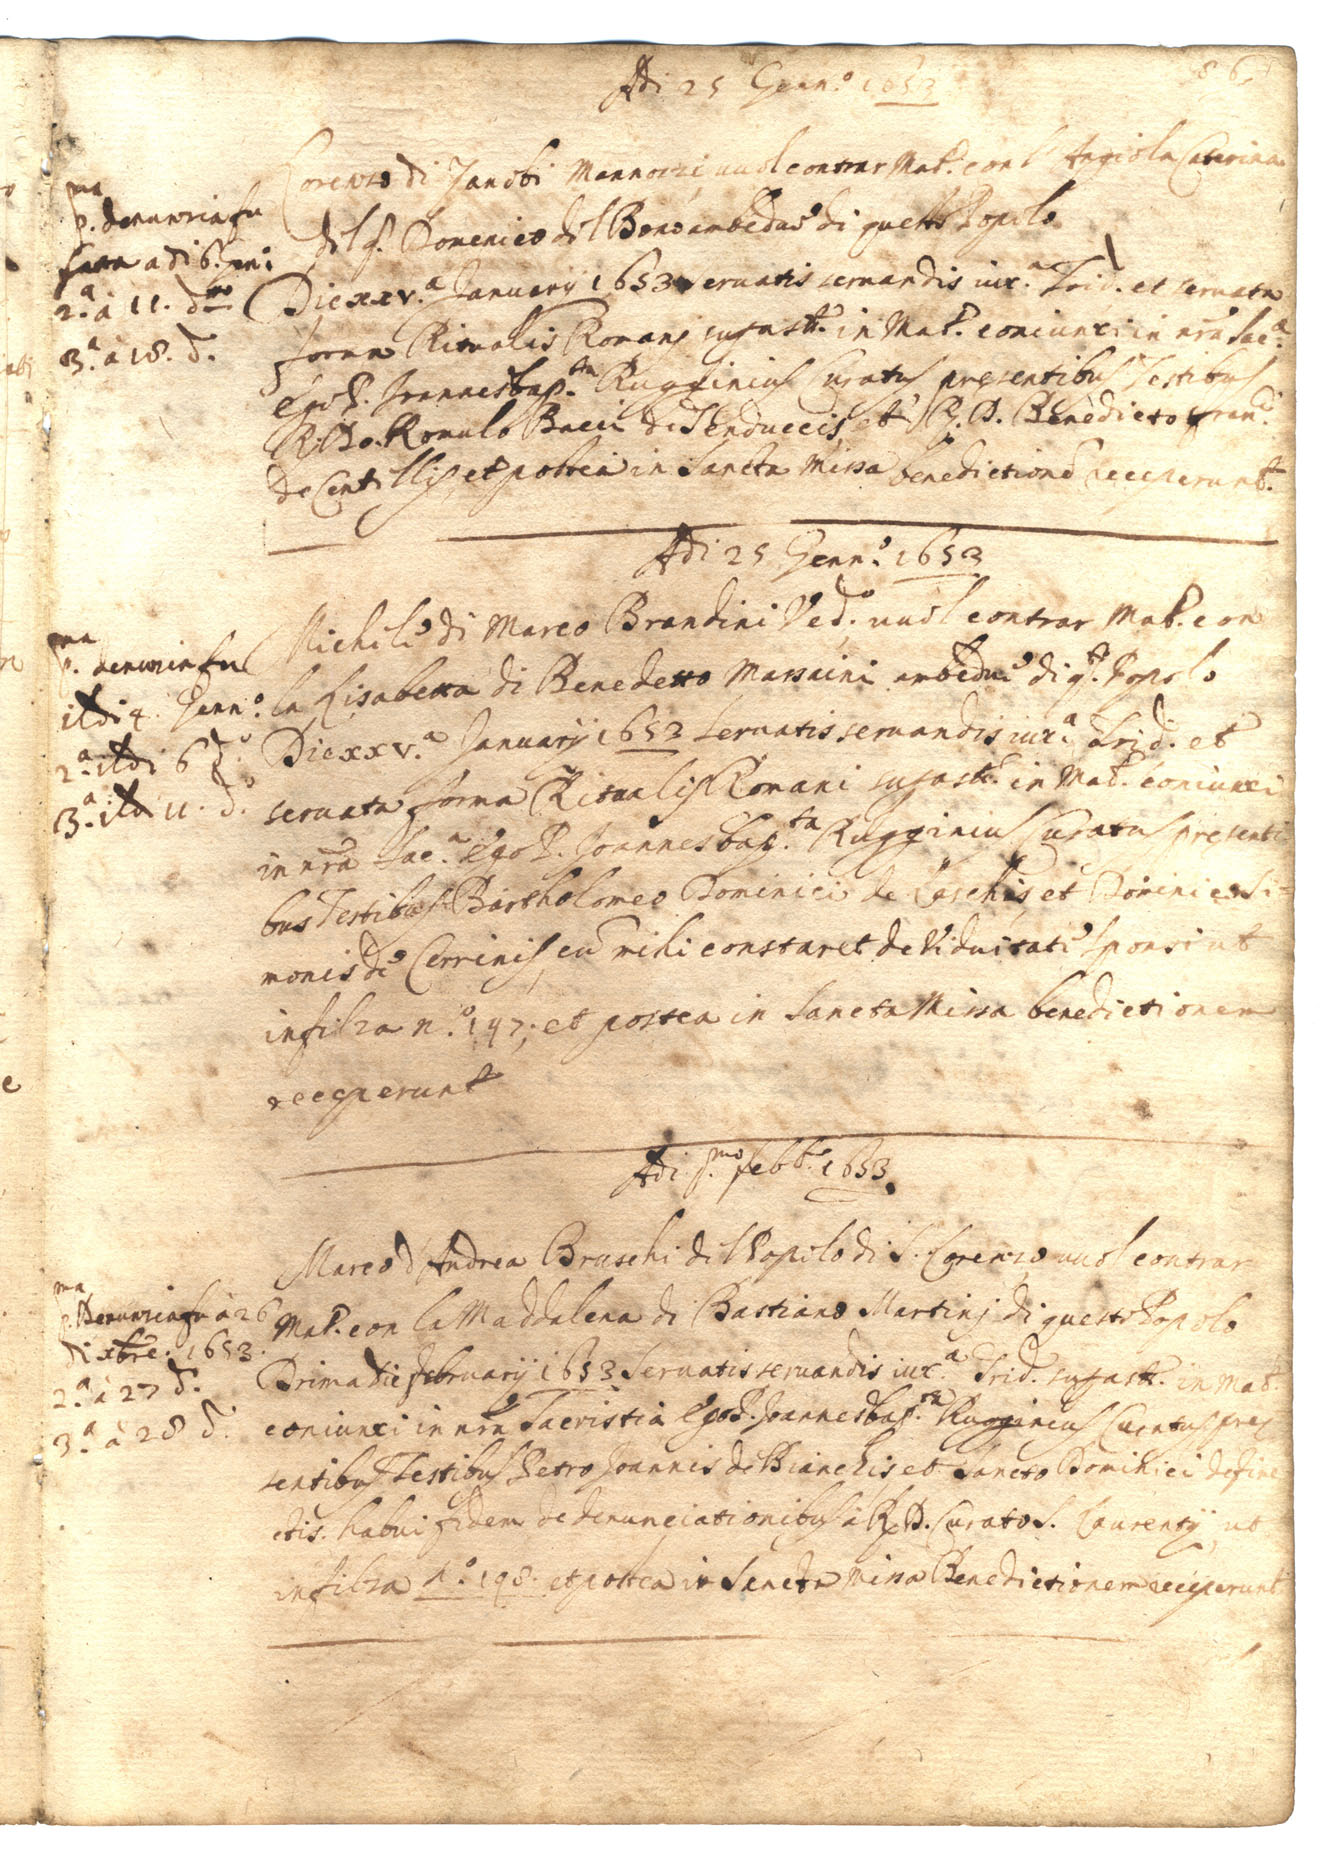 86
Adi 25 Genn.o 1653
Lorenzo di Zanobi Mannozzi vuol contrar Mat.o con l'Angiola Caterina
del q. Domenico del Bono ambedue di questo Popolo
Die xxv.a Januarij 1653 servatis servandis iux.a Trid. et servata
forma Ritualis Romani in Mat.o coniunxi in nrã Sac.a
Ego P. Joannesbap.ta Rugginius Curatus presentibus Testibus
R. Do. Romulo Bacii de Tenducciis, et R. D. Benedicto Fran.ci
de Centellis, et postea in Sancta Missa benedictionẽ receperunt
p.ma denunzia fu
fatta adi 6. Genn:
2.a à 11. d.to
3.a à 18. d.
Adi 25 Genn.o 1653
Michele di Marco Brandini Ved.o vuol contrar Mat.o con
la Lisabetta di Benedetto Massaini ambedue di q.to Popolo
Die xxv.a Januarij 1653 servatis servandis iux.a Trid. et
servata forma Ritualis Romani in Mat.o coniunxi
in nrã Sac.a Ego P. Joannesbap.ta Rugginius Curatus presenti
bus Testibus Bartholomeo Dominici de Laschis, et Dominico Si=
monis de Cerrinis, cũ mihi constaret de Viduitate Sponsi ut
in filza n.o 197; et postea in Sancta Missa benedictionem
receperunt
p.ma denunzia fu
il di 4. Genn.o
2.a il di 6 d.o
3.a il di 11. d.o
Adi p.mo febb.o 1653
Marco d'Andrea Bruschi del Popolo di S. Lorenzo vuol contrar
Mat.o con la Maddalena di Bastiano Martinj di questo Popolo
Prima die februarij 1653 Servatis servandis iux.a Trid. in Mat.o
coniunxi in nrã Sacristia Ego P. Joannesbap.ta Rugginius Curatus pre
sentibus Testibus Petro Joannis de Bianchis et Sancto Dominici de Fine
ctis. habui fidem de denunciationibus à R. D. Curato S. Laurentij, ut
in filza n.o 198. et postea in Sancta Missa Benedictionem receperunt
p.ma Denunzia fu à 26
di xbre. 1653.
2.a à 27 d.
3.a à 28 d.